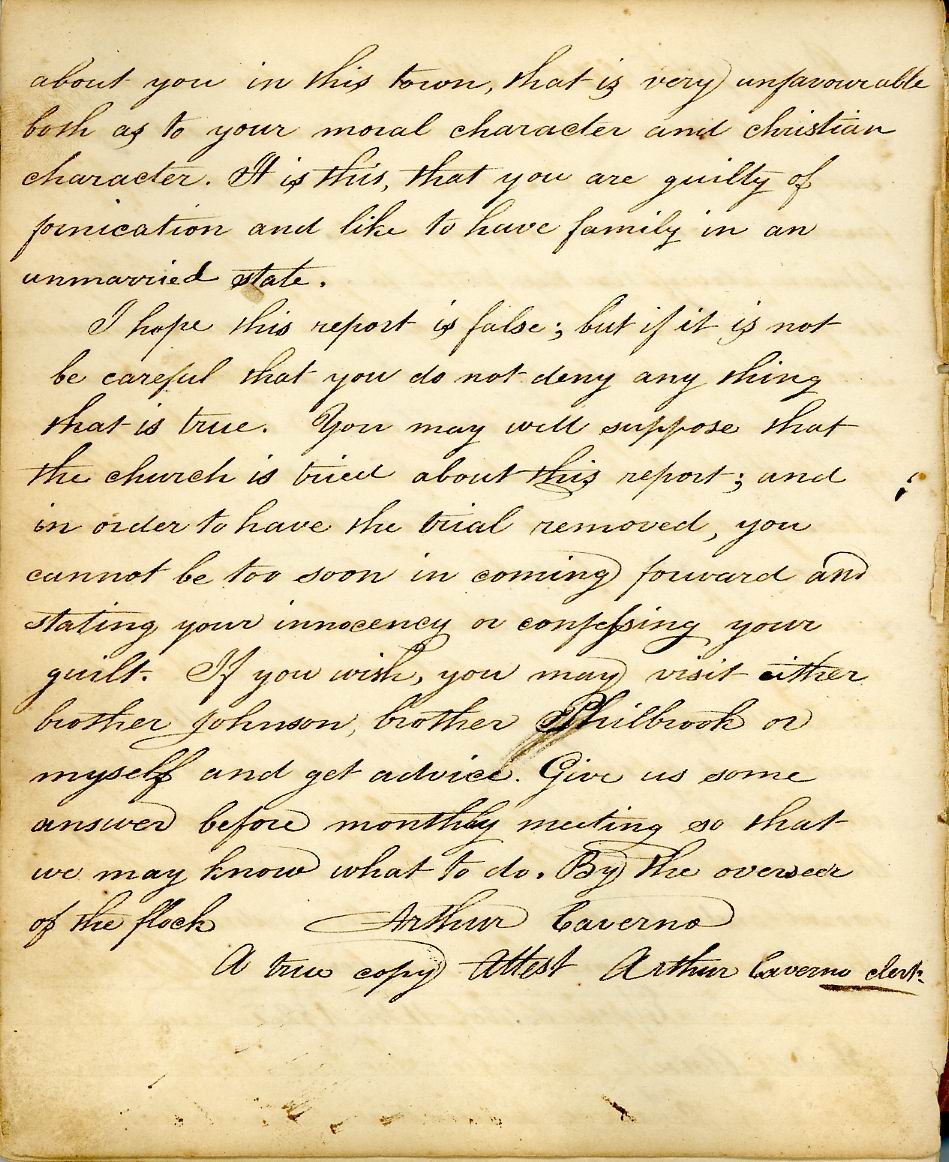 about you in this town, that is very unfavourable
both as to your moral character and christian
character. It is this, that you are guilty of
fornication and like to have family in an
unmarried state.
I hope this report is false; but if it is not
be careful that you do not deny any thing
that is true. You may well suppose that
the church is tried about this report; and
in order to have the trial removed, you
cannot be too soon in coming forward and
stating your innocency or confessing your
guilt. If you wish, you may visit either
brother Johnson, brother Philbrook or
myself and get advice. Give us some
answer before monthly meeting so that
we may know what to do. By the overseer
of the flock Arthur Caverno
A true copy Attest Arthur Caverno clerk